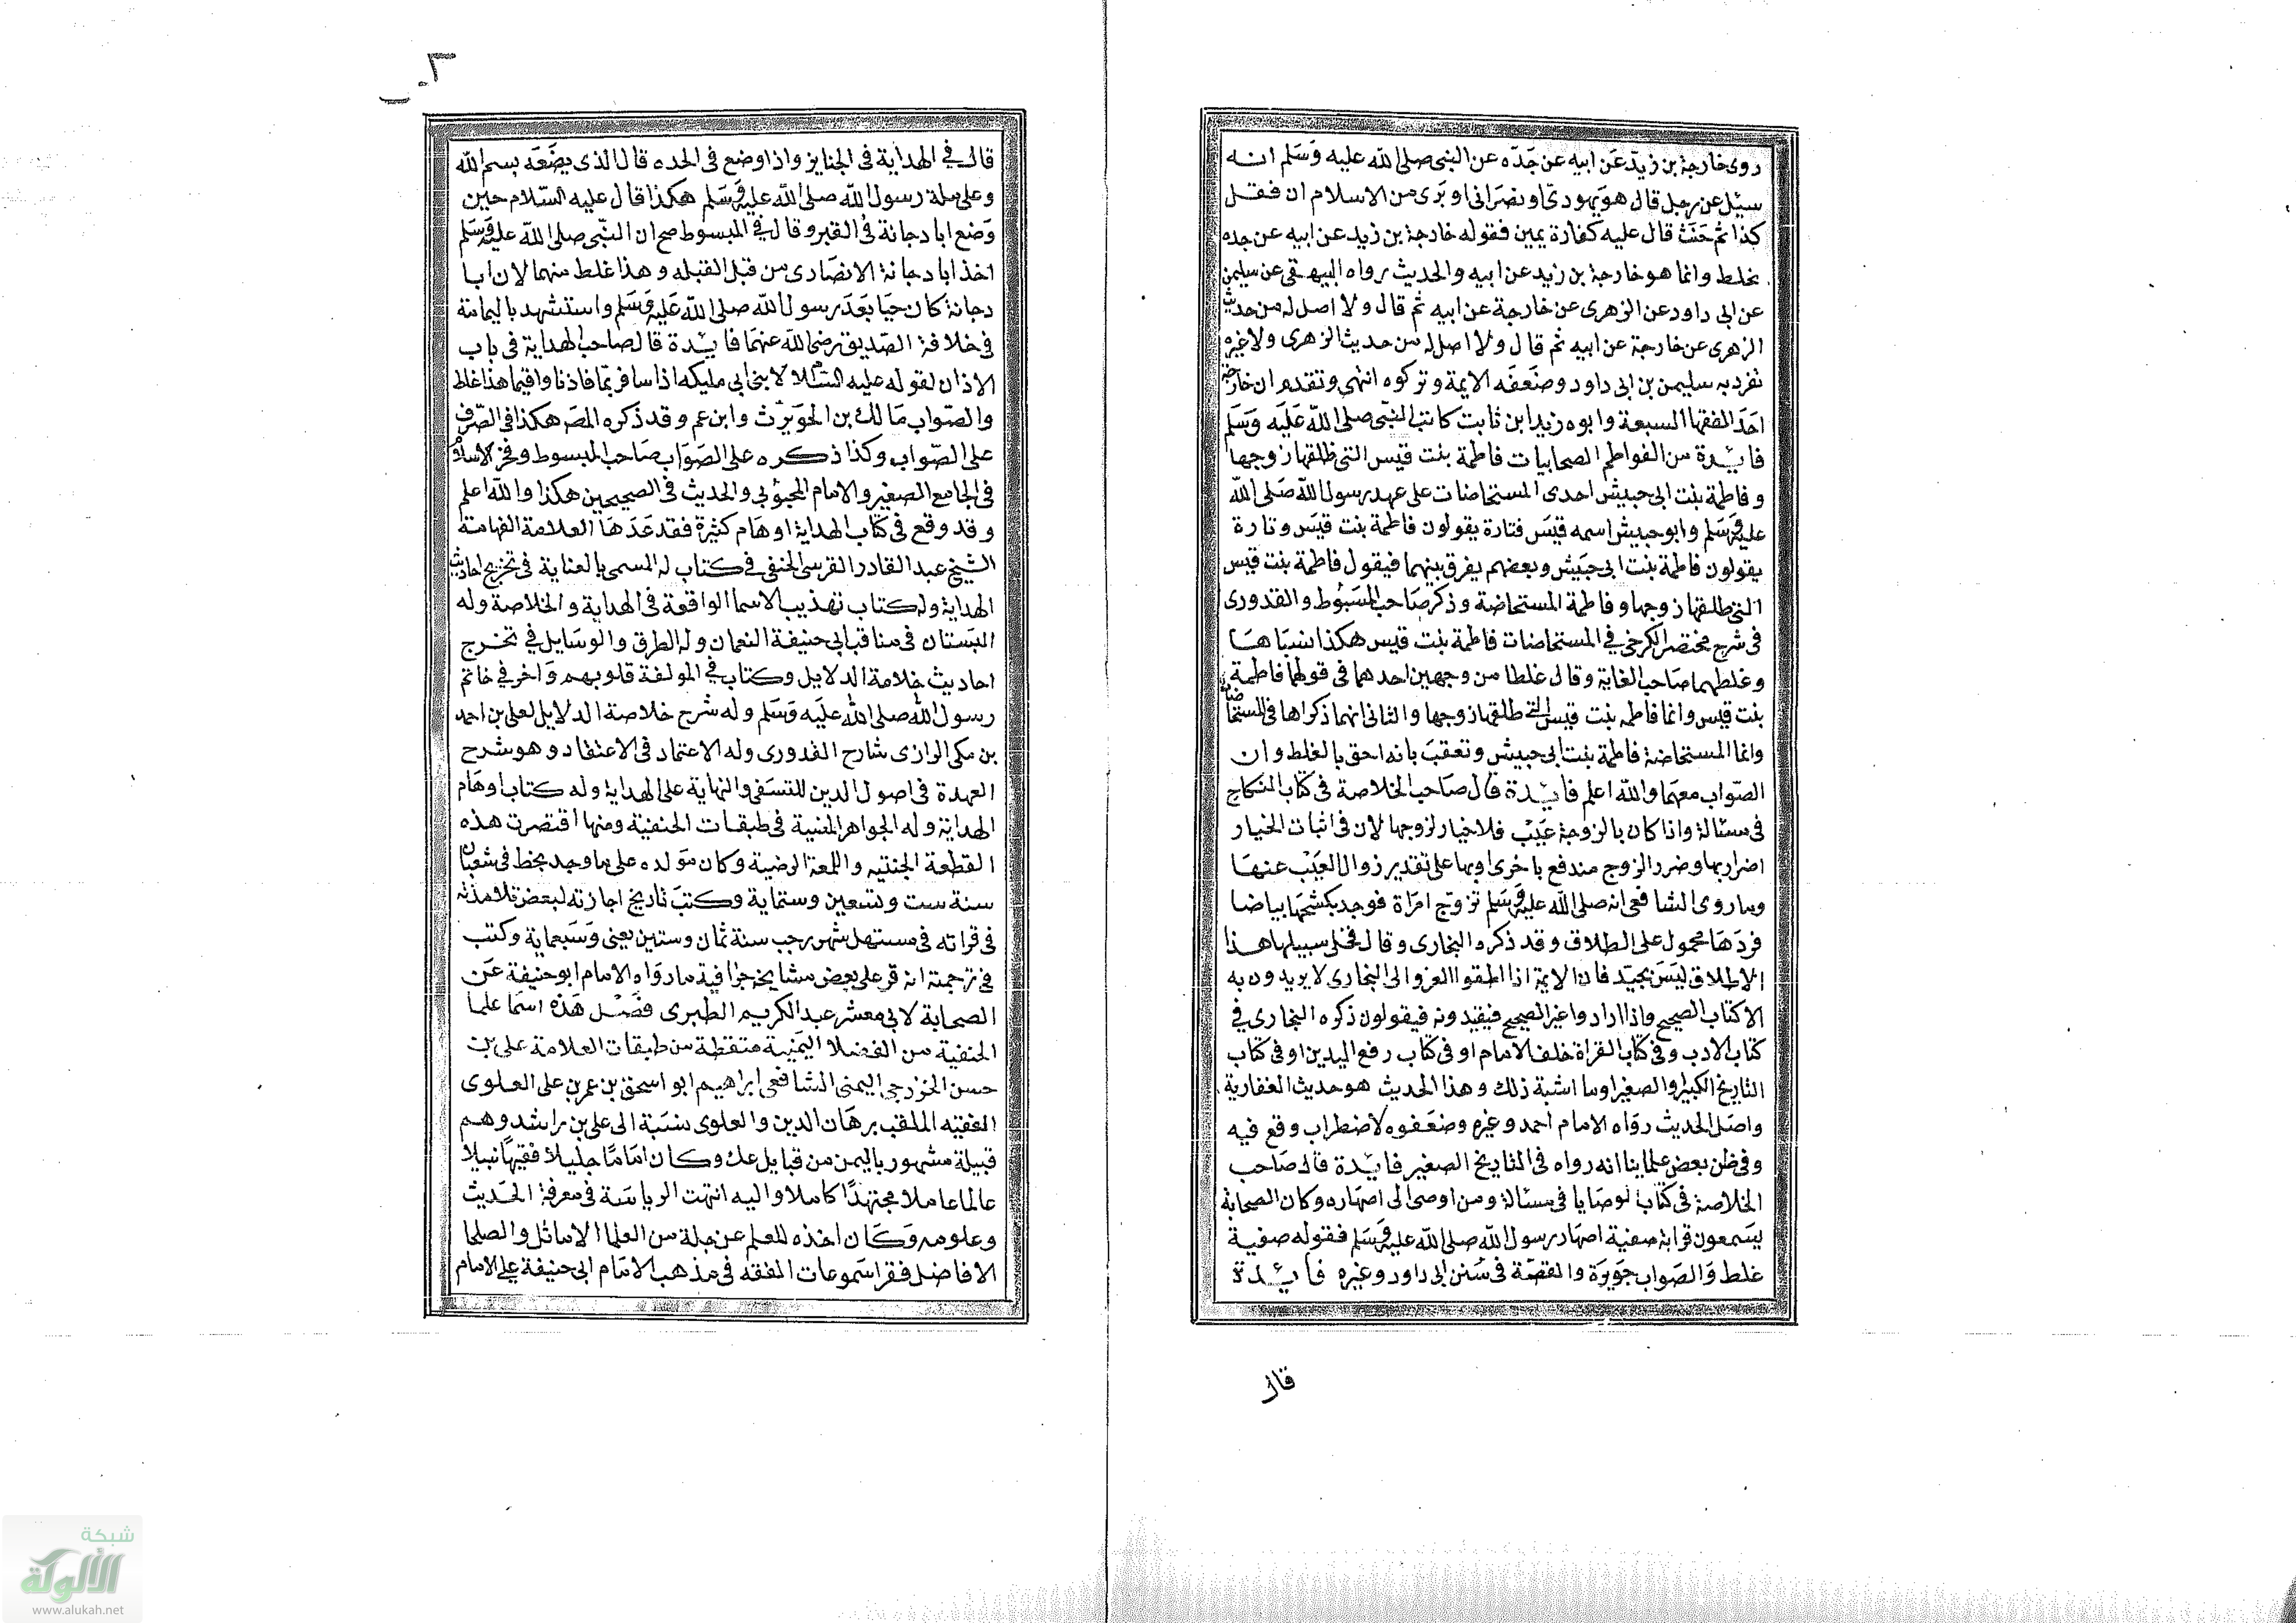 روى خارجة بن زيد عن ابيه عن جده عن النبى صلى الله عليه وسلم انه
سئل عن رجل قال هو يهودىّ او نصرانى او برى من الاسلام ان فعل
كذا ثم حنث قال عليه كفارة يمين فقوله خارجة بن زيد عن ابيه عن جده
غلط وانما هو خارجة بن زيد عن ابيه والحديث رواه البيهقى عن سليمن
عن ابى داود عن الزهرى عن خارجة عن ابيه ثم قال ولا اصل له من حديث
الزهرى عن خارجة عن ابيه ثم قال ولا اصل له من حديث الزهرى ولا غيره
تفرد به سليمن بن ابى داود وضعفه الايمة وتركوه انتهى وتقدم ان خارجة
احد الفقها السبعة وابوه زيد ابن ثابت كاتب النبى صلى الله عليه وسلم
فائدة من الفواطم الصحابيات فاطمة بنت قيس التى طلقها زوجها
وفاطمة بنت ابى حبيش احدى المستحاضات على عهد رسول الله صلى الله
عليه وسلم وابو حبيش اسمه قيس فتارة يقولون فاطمة بنت قيس وتارة
يقولون فاطمة بنت ابى حبيش وبعضهم يفرق بينهما فيقول فاطمة بنت قيس
التى طلقها زوجها وفاطمة المستحاضة وذكر صاحب المسبوط والقدورى
فى شرح مختصر الكرخى فى المستحاضات فاطمة بنت قيس هكذا نسباها
وغلطهما صاحب الغاية وقال غلطا من وجهين احدهما فى قولهما فاطمة
بنت قيس وانما فاطمه بنت قيس التى طلقها زوجها والثانى انهما ذكراها فى المستحاضات
وانما المستحاضة فاطمة بنت ابى حبيش وتعقب بانه احق بالغلط وان
الصواب معهما والله اعلم فائدة قال صاحب الخلاصة فى كتاب النكاح
فى مسئالة واذا كان بالزوجة عيب فلا خيار لزوجها لان فى اثبات الخيار
اضرار بها وضرر الزوج مندفع باخرى او بها على تقدير زوال العيب عنها
وما روى الشافعى انه صلى الله عليه وسلم تزوج امراة فوجد بكشحها بياضا
فردها محمول على الطلاق وقد ذكره البخارى وقال فخلى سبيلها هذا
الاطلاق ليس بجيد فان الايمة اذا اطقوا العزو الى البخارى لا يريدون به
الا كتاب الصحيح واذا ارادوا غير الصحيح فيقيدونه فيقولون ذكره البخارى فى
كتاب الادب وفى كتاب القراة خلف الامام او فى كتاب رفع اليدين او فى كتاب
التاريخ الكبير او الصغير او ما اشبة ذلك وهذا الحديث هو حديث الغفارية
واصل الحديث رواه الامام احمد وغيره وضعفوه لاضطراب وقع فيه
وفى ظن بعض علماينا انه رواه فى التاريخ الصغير فائدة قال صاحب
الخلاصة فى كتاب لوصايا فى مسئالة ومن اوصى الى اصهاره وكان الصحابة
يسمعون قرابة صفية اصهار رسول الله صلى الله عليه وسلم فقوله صفية
غلط والصواب جويرة والقصة فى سنن ابى داود وغيره فائدة
قال
قال فى الهداية فى الجنايز واذا وضع فى الحده قال الذى يضعه بسم الله
وعلى ملة رسول الله صلى الله عليه وسلم هكذا قال عليه السلام حين
وضع ابا دجانة فى القبر وقال فى المبسوط صح ان النبى صلى الله عليه وسلم
اخذ ابا دجانة الانصارى من قبل القبله وهذا غلط منهما لان ابا
دجانة كان حيا بعد رسول الله صلى الله عليه وسلم واستشهد باليمامة
فى خلافة الصديق رضى الله عنهما فائدة قال صاحب الهداية فى باب
الاذان لقوله عليه السلام لابنى ابى مليكه اذا سافرتما فاذنا واقيما هذا غلط
والصواب مالك بن الحويرث وابن عم وقد ذكره المص هكذا فى الصرف
على الصواب وكذا ذكره على الصواب صاحب المبسوط وفخر الاسلام
فى الجامع الصغير والامام المحبوبى والحديث فى الصحيحين هكذا والله اعلم
وقد وقع فى كتاب الهداية اوهام كثيرة فقد عدها العلامة الفهامة
الشيخ عبد القادر القرسى الحنفى فى كتاب له المسمى بالعناية فى تخريج احاديث
الهداية وله كتاب تهذيب الاسما الواقعة فى الهداية والخلاصة وله
البستان فى مناقب ابى حنيفة النعمان وله الطرق والوسايل فى تخرج
احاديث خلامة الدلايل وكتاب فى المولفة قلوبهم واخر فى خاتم
رسول الله صلى الله عليه وسلم وله شرح خلاصة الدلايل لعلى بن احمد
بن مكى الرازى شارح القدورى وله الاعتماد فى الاعتقاد وهو شرح
العهدة فى اصول الدين للنسفى والنهاية على الهداية وله كتاب اوهام
الهداية وله الجواهر المنية فى طبقات الحنفية ومنها اقتصرت هذه
القطعة الجنتيه واللمعة الرضية وكان مولده على ما وجد بخط فى شعبان
سنة ست وتسعين وستماية وكتب تاريخ اجازته لبعض تلامذته
فى قراته فى مستهل شهر رجب سنة ثمان وستين يعنى وسبعماية وكتب
فى ترجمته انه قر على بعض مشايخه جزا فية ما رواه الامام ابو حنيفة عن
الصحابة لابى معشر عبد الكريم الطبرى فصل هذه اسما علما
الحنفية من الفضلا اليمنية متقطة من طبقات العلامة على بن
حسن الخزرجى اليمنى الشافعى ابراهيم ابو اسحق بن عمر بن على العلوى
الفقيه الملقب برهان الدين والعلوى نسبة الى على بن راشد وهم
قبيلة مشهور باليمن من قبايل عك وكان امامًا جليلا فقيهًا نبيلا
عالما عاملا مجتهدًا كاملا واليه انتهت الرياسة فى معرفة الحديث
وعلومه وكان اخذه للعلم عن جلة من العلما الاماثل والصلحا
الافاضل فقرا سموعات الفقه فى مذهب الامام ابى حنيفة على الامام
شبكة
الألوكة
www.alukah.net